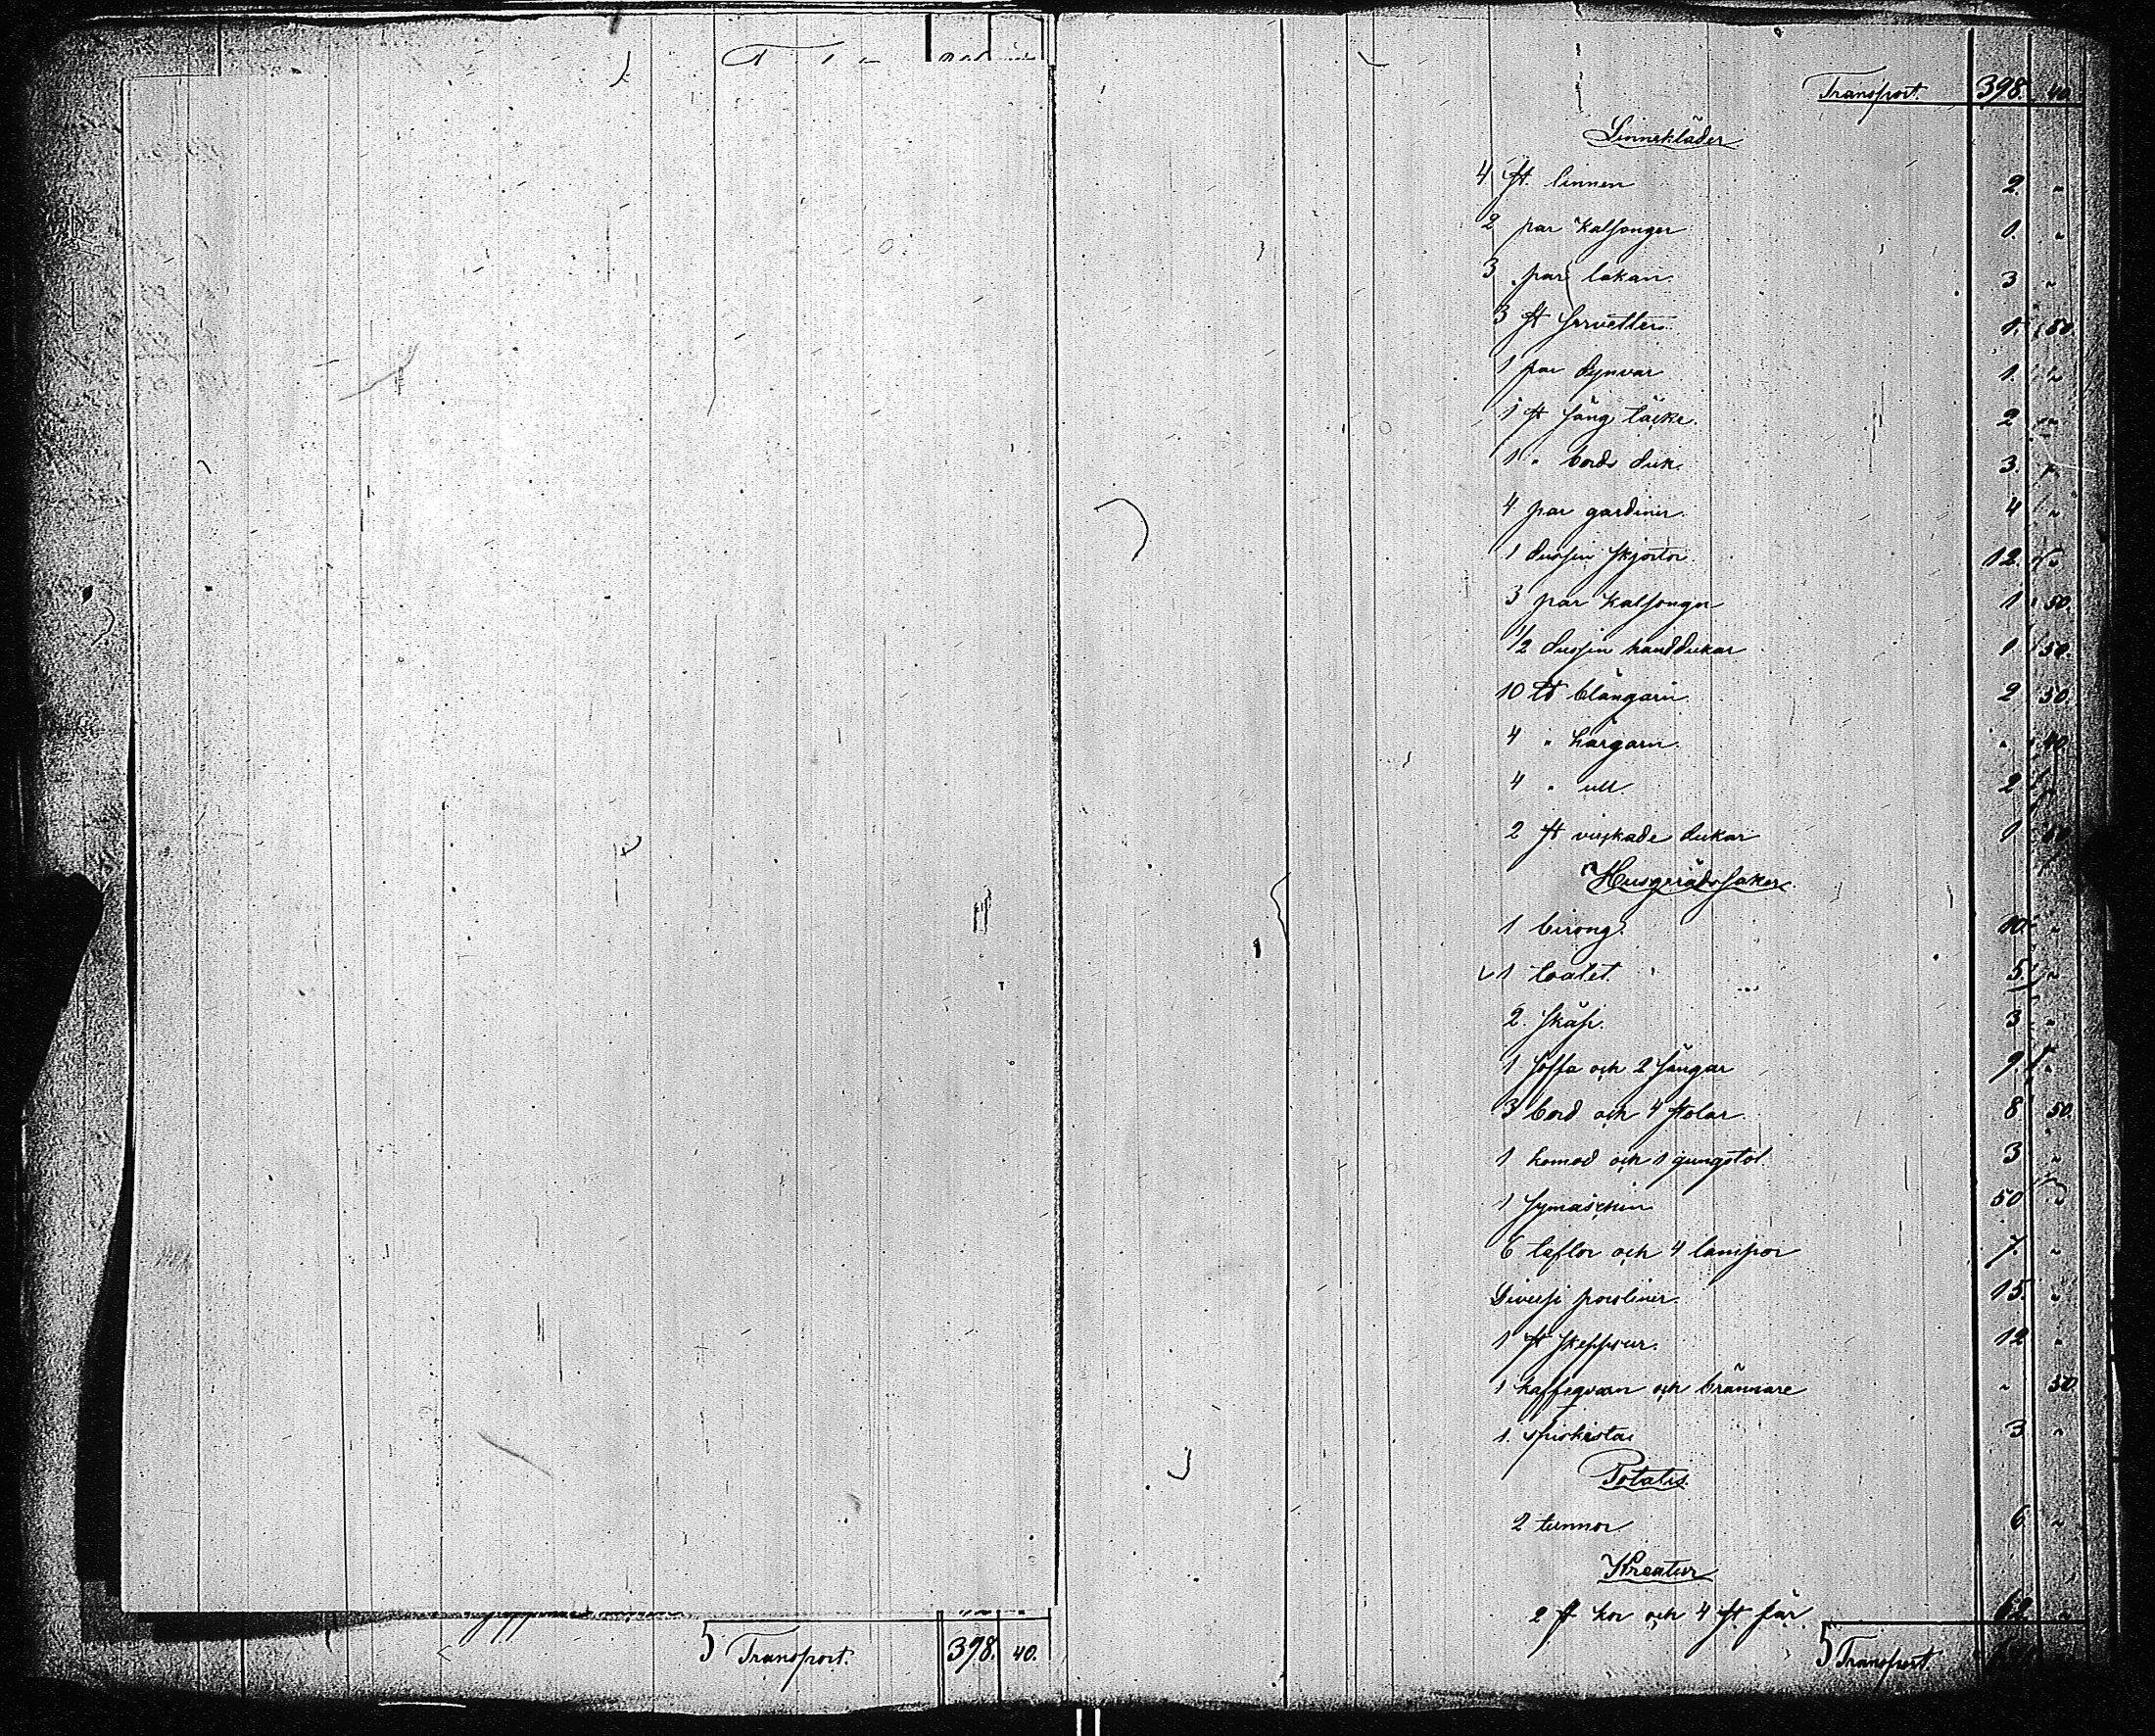 5 Transport. 398. 40.
Transport. 398. 40
Linnekläder
4 st. linnen 2. "
2 par Kalsonger 1. "
3 par lakan. 3 "
3 st servetter. 1. 50.
1 par dynvar 1. "
1 st säng täcke. 2 "
1 " bords duk. 3. "
4 par gardiner. 4 "
1 dussin skjortor. 12. "
3 par Kalsonger 1 50.
1/2 dussin handdukar 1 50.
10 ℔ blångarn. 2 50.
4 " hårgarn. " 40
4 " ull. 2 "
2 st virkade dukar 1
Husgerådssaker.
1 birong. 10 "
1 toalet. 5. "
2. skåp. 3 "
1 soffa och 2 sängar 9. "
3 bord och 4 stolar. 8 50.
1 komod och 1 gungstol. 3 "
1 symaschin 50 "
6 taflor och 4 lampor 7. "
Diverse porsliner. 15. "
1 st skeppsur. 12 "
1 kaffeqvarn och brännare " 50
1. spiskista 3 "
Potatis.
2 tunnor. 6 "
Kreatur
2 st kor och 4 st får. 62 "
5 Transport